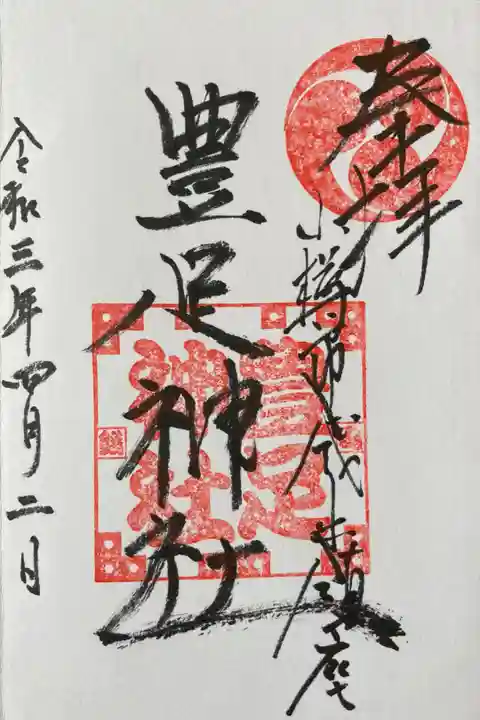 奉拝
小樽
豊足神社
豊足神社
令和三年四月二日